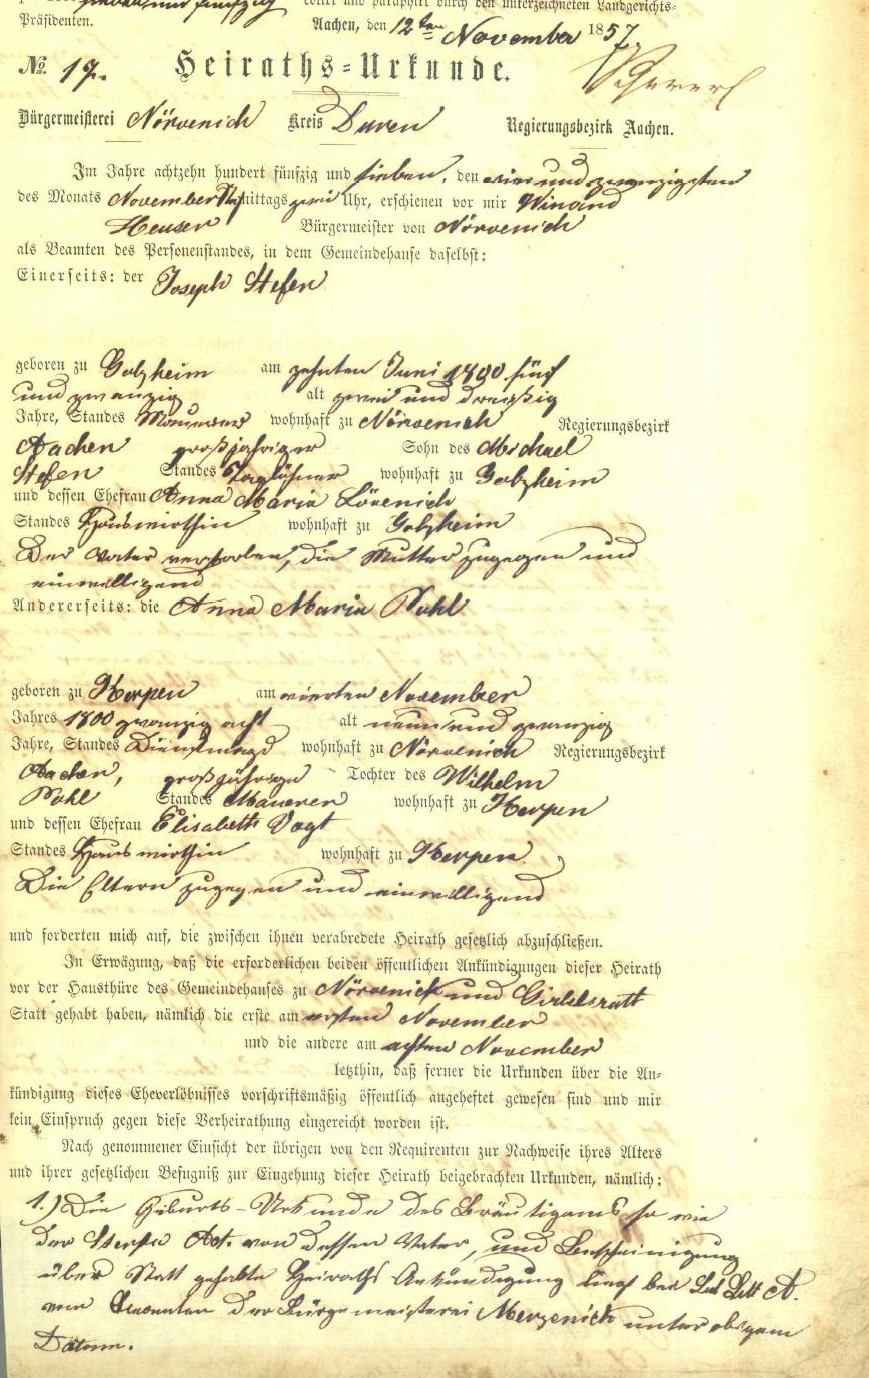 cotirt und paraphirt durch den unterzeichneten Landgerichts-
Präsidenten.
Aachen, den 12ten November 1857
No. 17.
Heiraths-Urkunde.
Bürgermeisterei Nörvenich Kreis Duren Regierungsbezirk Aachen.
Im Jahre achtzehn hundert fünfzig und sieben, den vier und zwanzigsten
des Monats November mittags zwei Uhr, erschienen vor mir Winand
Heuser Bürgermeister von Nörvenich
als Beamten des Personenstandes, in dem Gemeindehause daselbst:
Einerseits: der Joseph Stefen
geboren zu Golzheim am zehnten Juni 1800 fünf
und zwanzig alt zwei und dreißig
Jahre, Standes Maurer wohnhaft zu Nörvenich Regierungsbezirk
Aachen großjähriger Sohn des Michael
Stefen Standes Taglöhner wohnhaft zu Golzheim
und dessen Ehefrau Anna Maria Lövenich
Standes Hauswirthin wohnhaft zu Golzheim
Der Vater verstorben, die Mutter zugegen und
einwilligend
Andererseits: die Anna Maria Pohl
geboren zu Kerpen am vierten November
Jahres 1800 zwanzig acht alt neun und zwanzig
Jahre, Standes Dienstmagd wohnhaft zu Nörvenich Regierungsbezirk
Aachen, großjährige Tochter des Wilhelm
Pohl Standes Mauerer wohnhaft zu Kerpen
und dessen Ehefrau Elisabeth Vogt
Standes Hauswirthin wohnhaft zu Kerpen
Die Eltern zugegen und einwilligend
und forderten mich auf, die zwischen ihnen verabredete Heirath gesetzlich abzuschließen.
In Erwägung, daß die erforderlichen beiden öffentlichen Ankündigungen dieser Heirath
vor der Hausthüre des Gemeindehauses zu Nörvenich und Girbelsratt
Statt gehabt haben, nämlich die erste am ersten November
und die andere am achten November
letzthin, daß ferner die Urkunden über die An-
kündigung dieses Eheverlöbnisses vorschriftsmäßig öffentlich angeheftet gewesen sind und mir
kein Einspruch gegen diese Verheirathung eingereicht worden ist.
Nach genommener Einsicht der übrigen von den Requirenten zur Nachweise ihres Alters
und ihrer gesetzlichen Befugniß zur Eingehung dieser Heirath beigebrachten Urkunden, nämlich:
1.) Die Geburts-Urkunde des Bräutigams so wie
der Sterbe Act. von dessen Vater, und Bescheinigung
über Statt gehabte Heiraths Ankündigung Litt A.
der Bürgermeisterei Merzenich unter obigem
Datum.